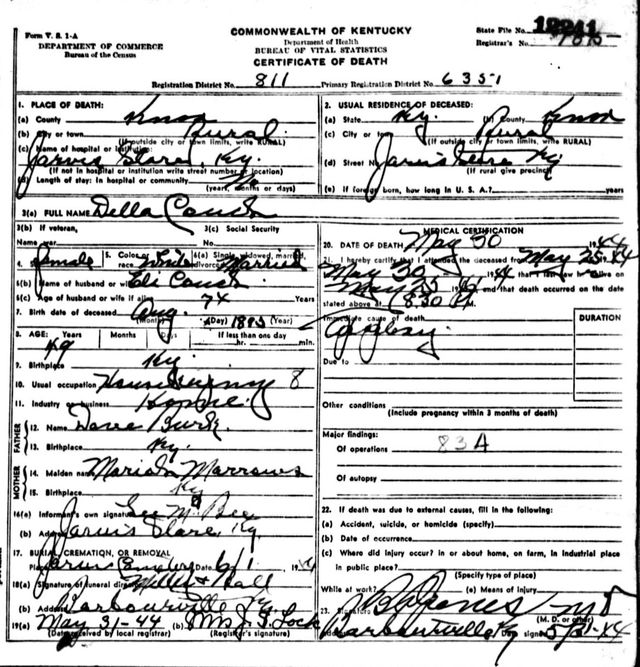 Form V. S. 1-A
DEPARTMENT OF COMMERCE
Bureau of the Census
COMMONWEALTH OF KENTUCKY
Department of Health
BUREAU OF VITAL STATISTICS
CERTIFICATE OF DEATH
State File No. 12241
Registrar's No.
Registration District No. 811 Primary Registration District No. 6351
1. PLACE OF DEATH:
(a) County Knox
(b) City or town Rural
(If outside city or town limits, write RURAL)
(c) Name of hospital or institution:
Jarvis Store, Ky.
(If not in hospital or institution write street number or location)
(d) Length of stay: In hospital or community
(years, months or days)
2. USUAL RESIDENCE OF DECEASED:
(a) State Ky. (b) County Knox
(c) City or town Rural
(If outside city or town limits, write RURAL)
(d) Street No. Jarvis Store Ky
(If rural give precinct)
(e) If foreign born, how long in U. S. A.? years
3(a) FULL NAME Della Couch
3(b) If veteran,
Name war
3(c) Social Security
No.
4. Female 5. Color or race White 6(a) Single, widowed, married, divorced Married
6(b) Name of husband or wife Eli Couch
6(c) Age of husband or wife if alive 74 Years
7. Birth date of deceased Aug.
(Month) (Day) (Year)
8. AGE: Years Months Days If less than one day
hr. min.
9. Birthplace Ky.
10. Usual occupation Housekeeping 8
11. Industry or business Home
FATHER
12. Name Dave Burk
13. Birthplace Ky.
MOTHER
14. Maiden name Mariah Marrows
15. Birthplace Ky
16(a) Informant's own signature
(b) Address Jarvis Store, Ky
17. BURIAL, CREMATION, OR REMOVAL
Place Jarvis Cemetery Date 6/1 1944
18(a) Signature of funeral director Miller & Hall
(b) Address Barbourville Ky
19(a) May 31-44 (b) Mrs J. F. Lock
(Date received by local registrar) (Registrar's signature)
MEDICAL CERTIFICATION
20. DATE OF DEATH May 30 1944
21. I hereby certify that I attended the deceased from May 25-44
May 30 1944 that I last saw alive on
May 25 and that death occurred on the date
stated above at 8:30 P.M.
Immediate cause of death
DURATION
Due to
Other conditions
(Include pregnancy within 3 months of death)
Major findings:
Of operations 83A
Of autopsy
22. If death was due to external causes, fill in the following:
(a) Accident, suicide, or homicide (specify)
(b) Date of occurrence
(c) Where did injury occur? in or about home, on farm, in industrial place
in public place?
(Specify type of place)
While at work? (e) Means of injury
23. Signature Jones M D
(M. D. or other)
Barbourville Ky 5/31-44